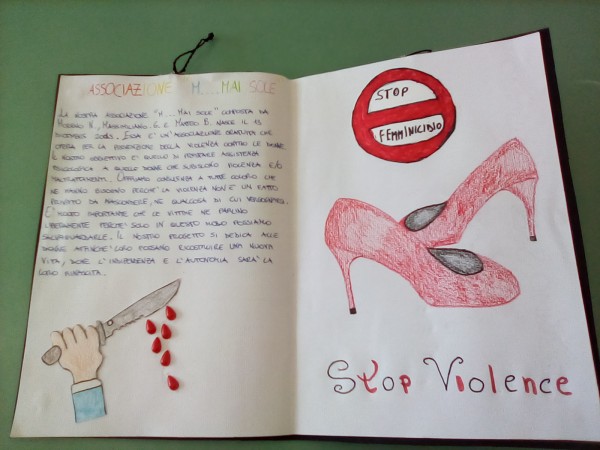 ASSOCIAZIONE M....MAI SOLE
LA NOSTRA ASSOCIAZIONE "M....MAI SOLE" COMPOSTA DA
MASSIMILIANO G. E B. NASCE IL
ESSA E' UN'ASSOCIAZIONE GRATUITA CHE
OPERA PER LA PREVENZIONE DELLA VIOLENZA CONTRO LE DONNE.
IL NOSTRO OBBIETTIVO E' QUELLO DI FORNIRE ASSISTENZA
PSICOLOGICA A QUELLE DONNE CHE SUBISCONO VIOLENZA E/O
MALTRATTAMENTI. OFFRIAMO CONSULENZA A TUTTE COLORO CHE
NE HANNO BISOGNO PERCHE' LA VIOLENZA NON E' UN FATTO
PRIVATO DA NASCONDERE, NE QUALCOSA DI CUI VERGOGNARSI.
E' MOLTO IMPORTANTE CHE LE VITTIME NE PARLINO
LIBERAMENTE PERCHE' SOLO IN QUESTO MODO POSSIAMO
SALVAGUARDARLE. IL NOSTRO PROGETTO SI DEDICA ALLE
DONNE AFFINCHE' LORO POSSANO RICOSTRUIRE UNA NUOVA
VITA, DOVE L'INDIPENDENZA E L'AUTONOMIA SARA' LA
LORO RINASCITA.
STOP
FEMMINICIDIO
Stop Violence